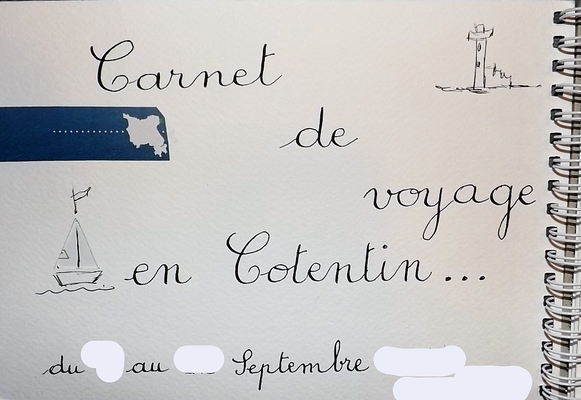 Carnet
de
voyage
en Cotentin...
du au Septembre